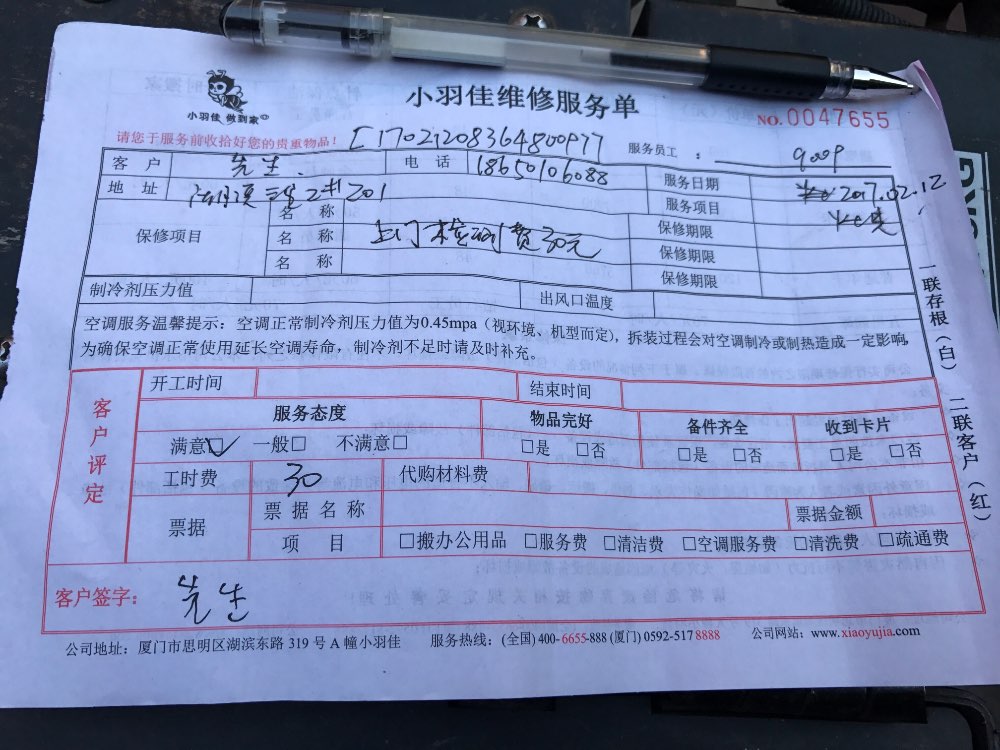 小羽佳 做到家
小羽佳维修服务单
NO. 0047655
请您于服务前收拾好您的贵重物品!
服务员工 : 9009
客 户 先生. 电 话 18650106088 服务日期 2017.02.12
地 址 2#201 服务项目
保修项目
名 称 保修期限
名 称 上门检测费30元 保修期限
名 称 保修期限
制冷剂压力值 出风口温度
空调服务温馨提示：空调正常制冷剂压力值为0.45mpa（视环境、机型而定），拆装过程会对空调制冷或制热造成一定影响，
为确保空调正常使用延长空调寿命，制冷剂不足时请及时补充。
一联存根（白） 二联客户（红）
客户评定
开工时间 结束时间
服务态度 物品完好 备件齐全 收到卡片
满意☑ 一般□ 不满意□ □是 □否 □是 □否 □是 □否
工时费 30 代购材料费
票据 票 据 名 称 票据金额
项 目 □搬办公用品 □服务费 □清洁费 □空调服务费 □清洗费 □疏通费
客户签字： 先生
公司地址：厦门市思明区湖滨东路 319 号 A 幢小羽佳 服务热线：(全国) 400-6655-888 (厦门) 0592-517 8888 公司网站：www.xiaoyujia.com